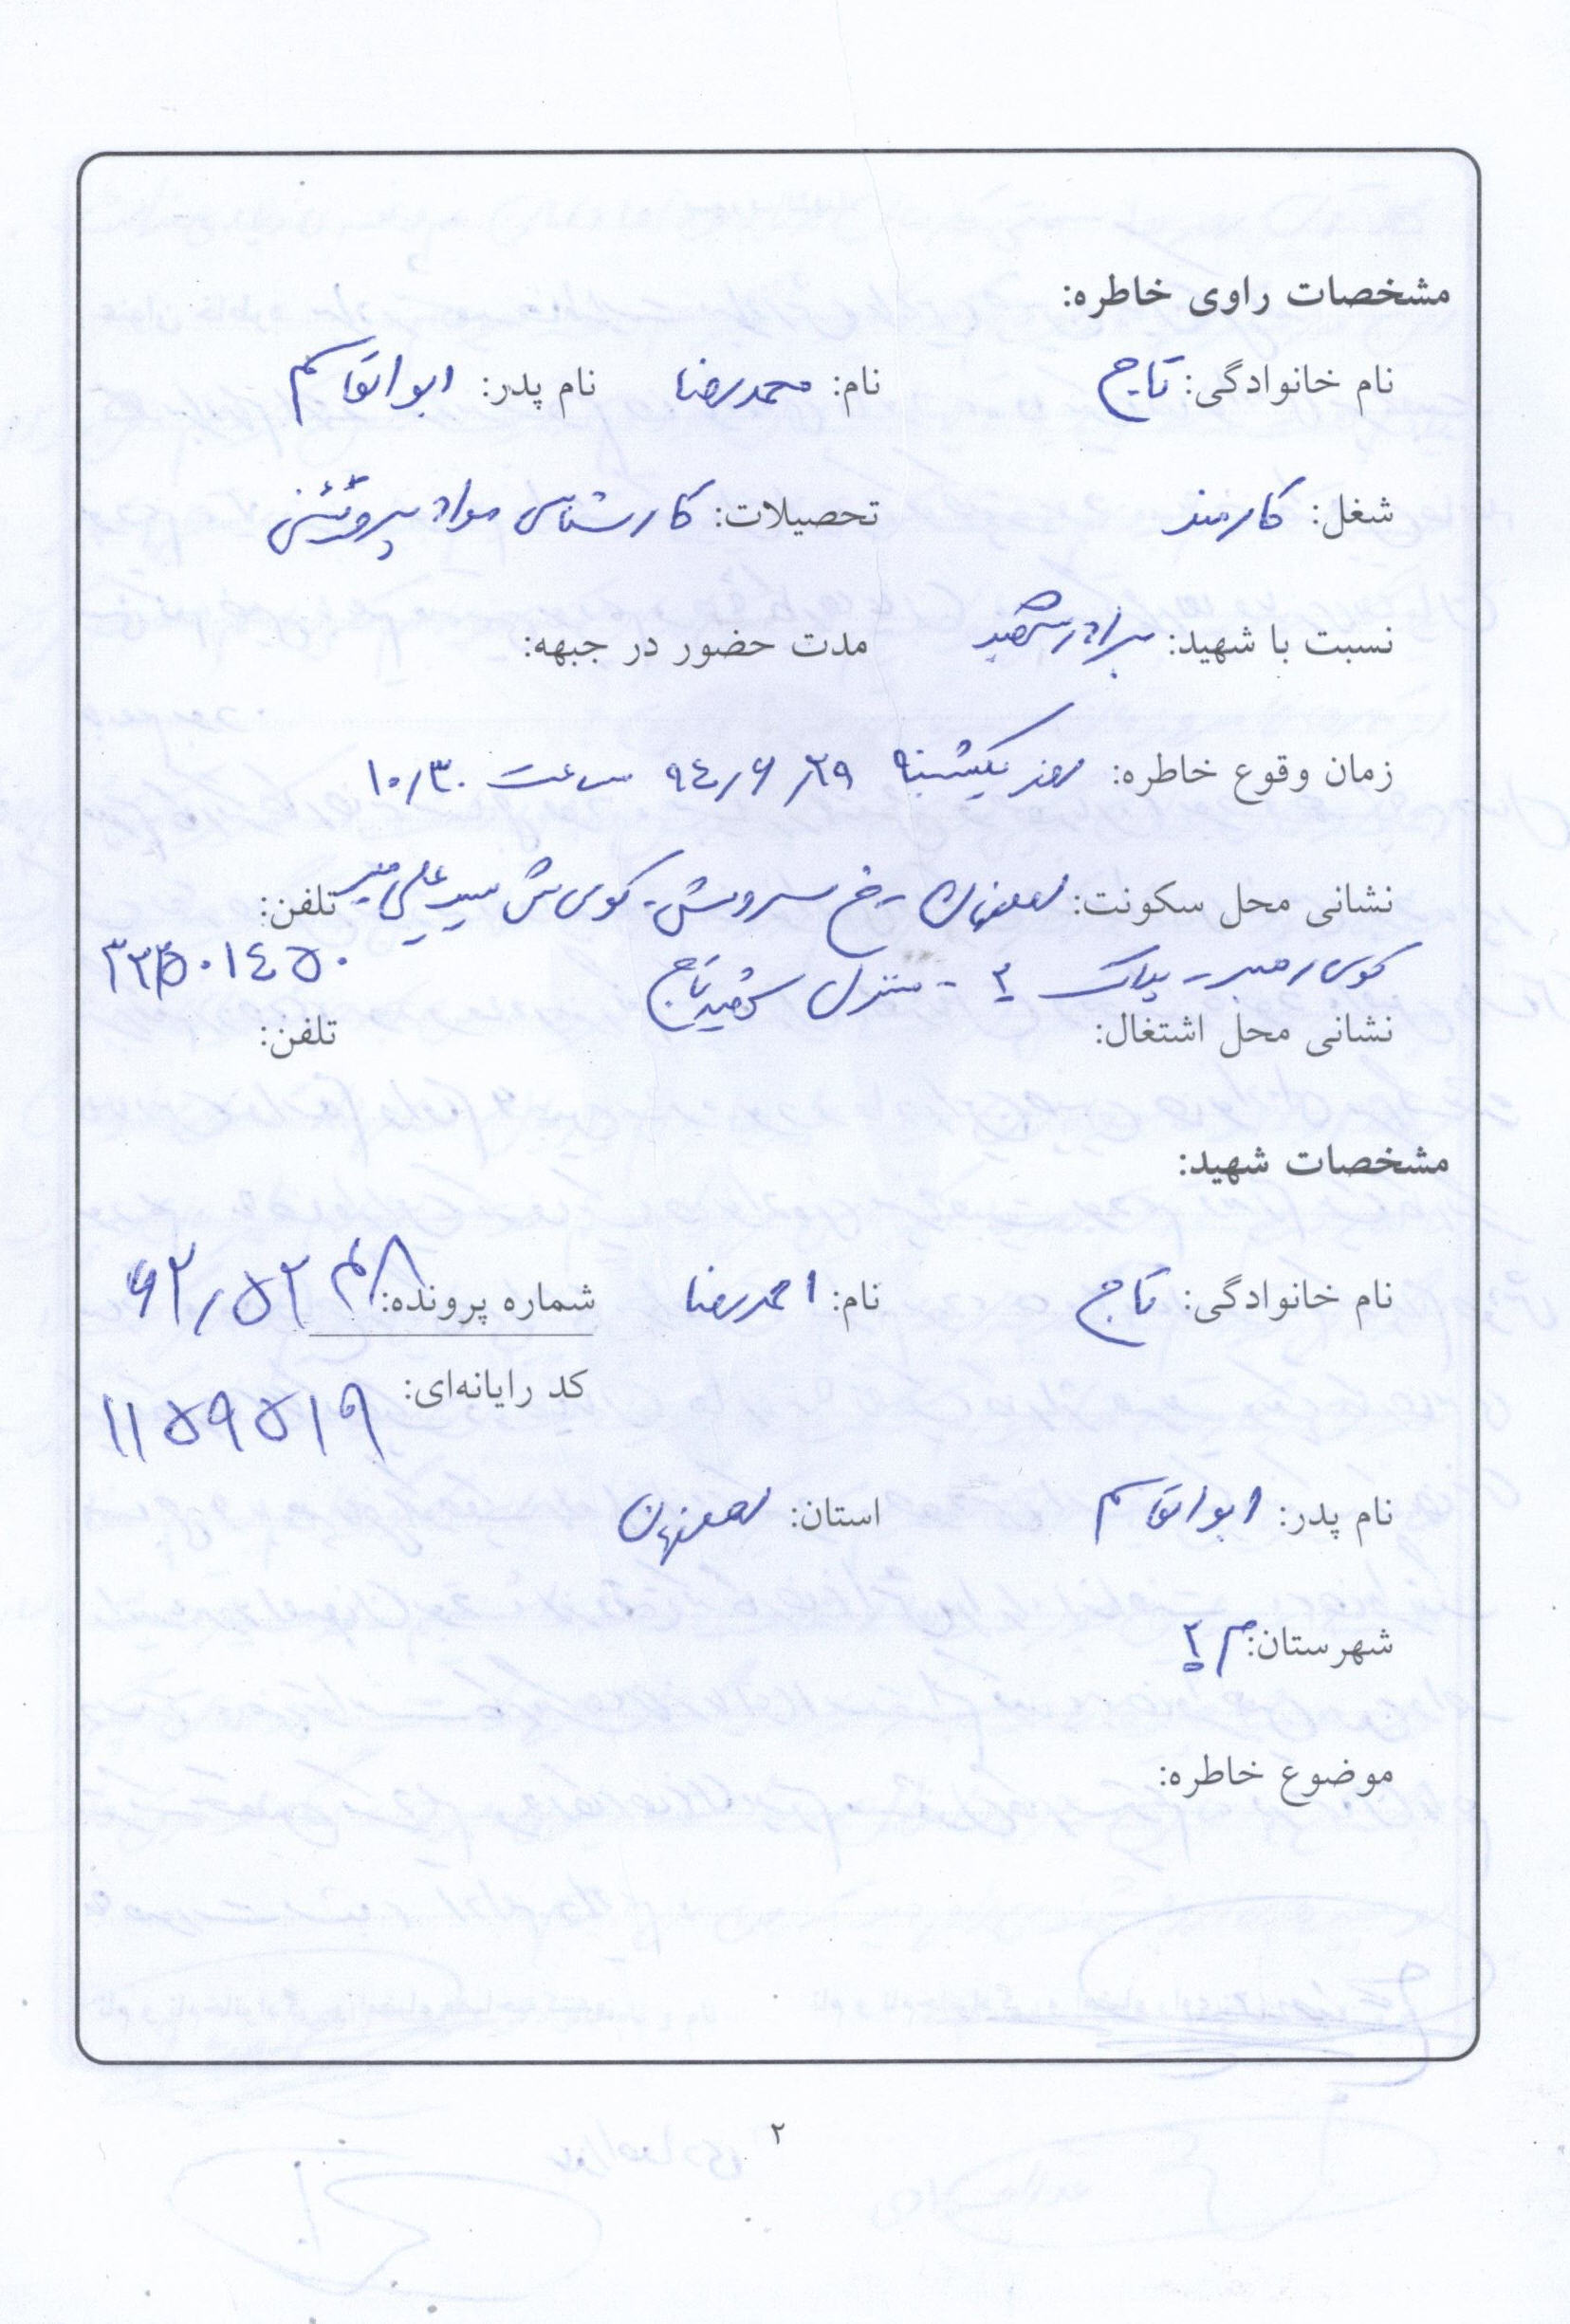 مشخصات راوی خاطره:
نام خانوادگی: تاج نام: محمدرضا نام پدر: ابوالقاسم
شغل: کارمند تحصیلات: کارشناس مواد پروتئینی
نسبت با شهید: برادر شهید مدت حضور در جبهه:
زمان وقوع خاطره: روز یکشنبه ۹۴/۶/۲۹ ساعت ۱۰/۳۰
نشانی محل سکونت: اصفهان - خ سروش - کوی ش سید علی میر تلفن:
کوی - پلاک ۲ - منزل شهید تاج
نشانی محل اشتغال: تلفن:
مشخصات شهید:
نام خانوادگی: تاج نام: احمدرضا شماره پرونده:
کد رایانه‌ای: ۱۱۵۹۵۱۹
نام پدر: ابوالقاسم استان: اصفهان
شهرستان: م ۲
موضوع خاطره:
۲